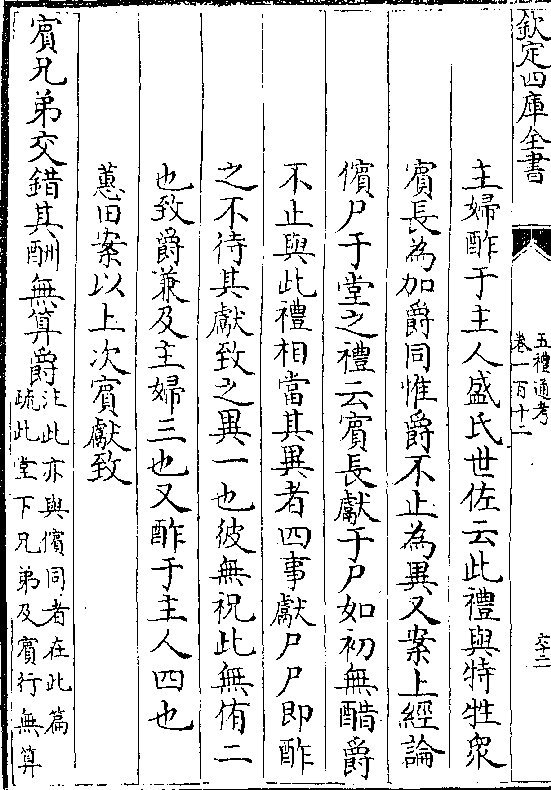 欽定四庫全書
五禮通考
卷一百十二
六十二
主婦酢于主人盛氏世佐云此禮與特牲衆
賓長為加爵同惟爵不止為異又案上經論
儐尸于堂之禮云賓長獻于尸如初無醋爵
不止與此禮相當其異者四事獻尸尸即酢
之不待其獻致之異一也彼無祝此無侑二
也致爵兼及主婦三也又酢于主人四也
蕙田案以上次賓獻致
賓兄弟交錯其酬無算爵
注此亦與儐同者在此篇
疏此堂下兄弟及賓行無算